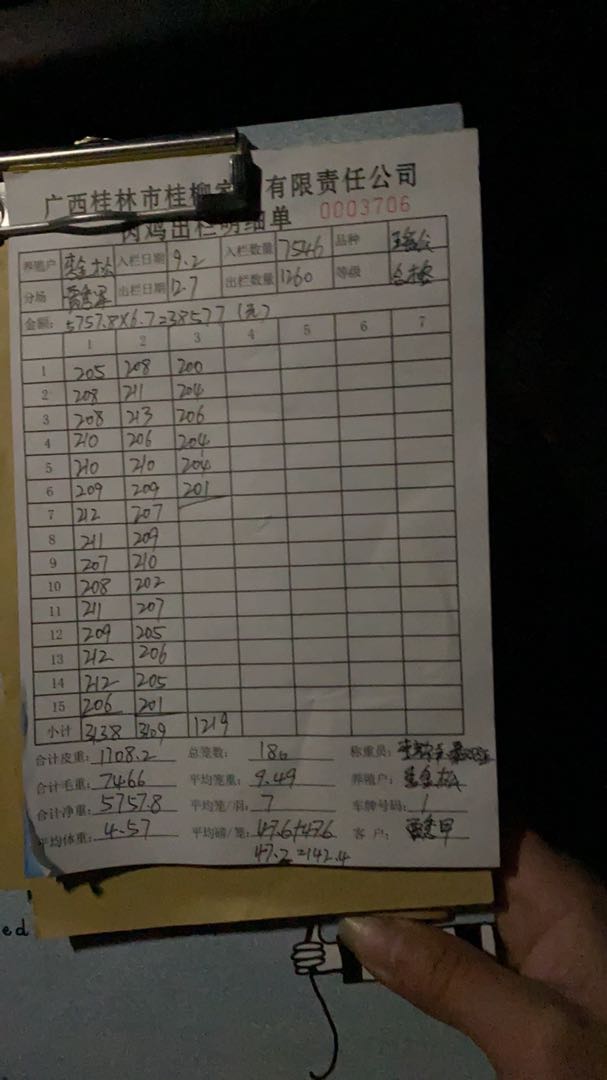 广西桂林市桂柳家 有限责任公司
肉鸡出栏明细单 0003706
养殖户 松 入栏日期 9.2 入栏数量 7546 品种
分场 出栏日期 12.7 出栏数量 1260 等级 合格
金额: 5757.8×6.7=38577 (元)
1 2 3 4 5 6 7
1 205 208 200
2 208 211 204
3 208 213 206
4 210 206 204
5 210 210 204
6 209 209 201
7 212 207
8 211 209
9 207 210
10 208 202
11 211 207
12 209 205
13 212 206
14 212 205
15 206 201
小计 3138 3109 1219
合计皮重: 1708.2 总笼数: 180 称重员:
合计毛重: 7466 平均笼重: 9.49 养殖户: 松
合计净重: 5757.8 平均笼/羽: 7 车牌号码: 1
平均体重: 4.57 平均磅/笼: 47.6+47.6 客 户:
47.2=142.4
ed